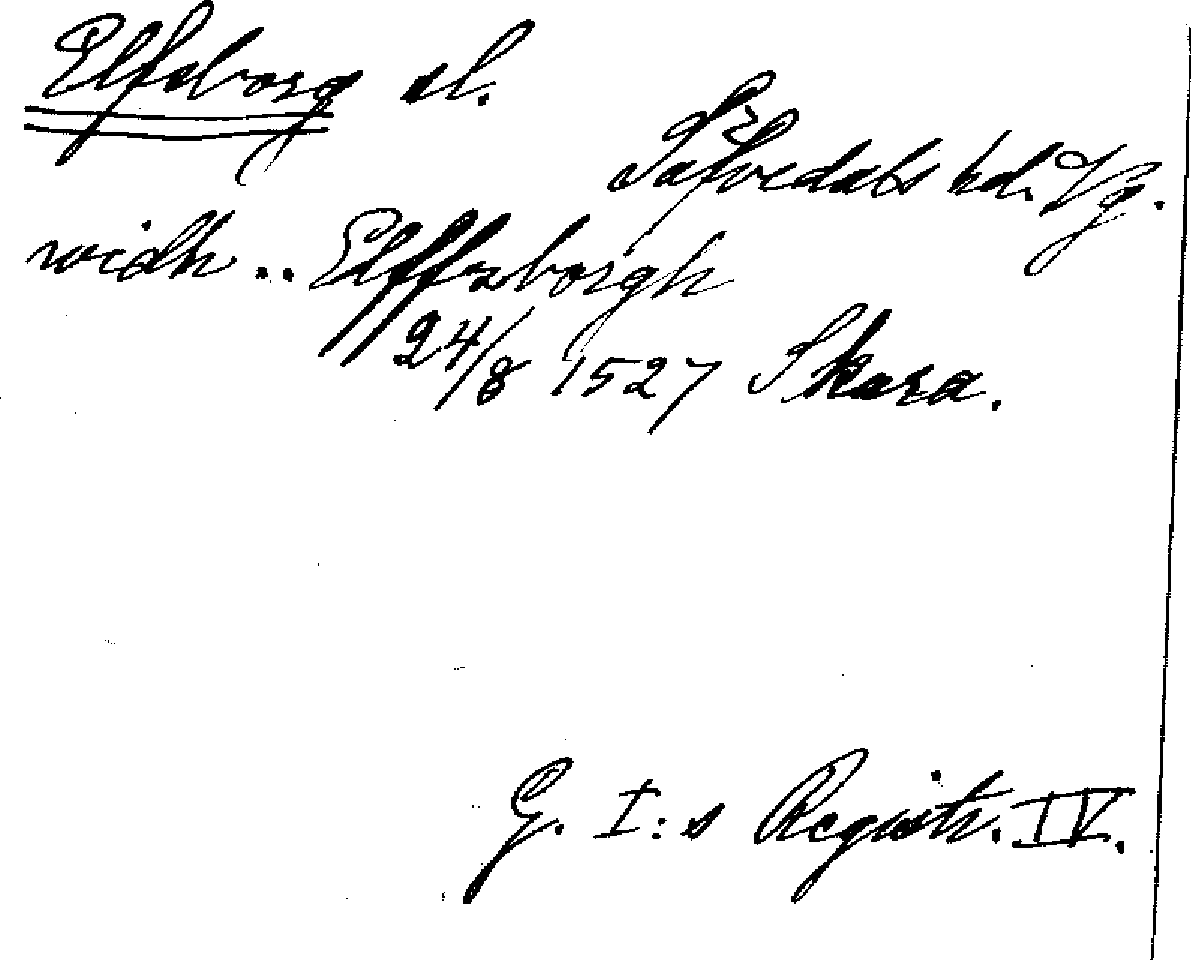 Elfsborg sl.
Säfvedals hd. Vg.
widh .. Elffzborgh
24/8 1527 Skara.
G. I:s Registr. IV.